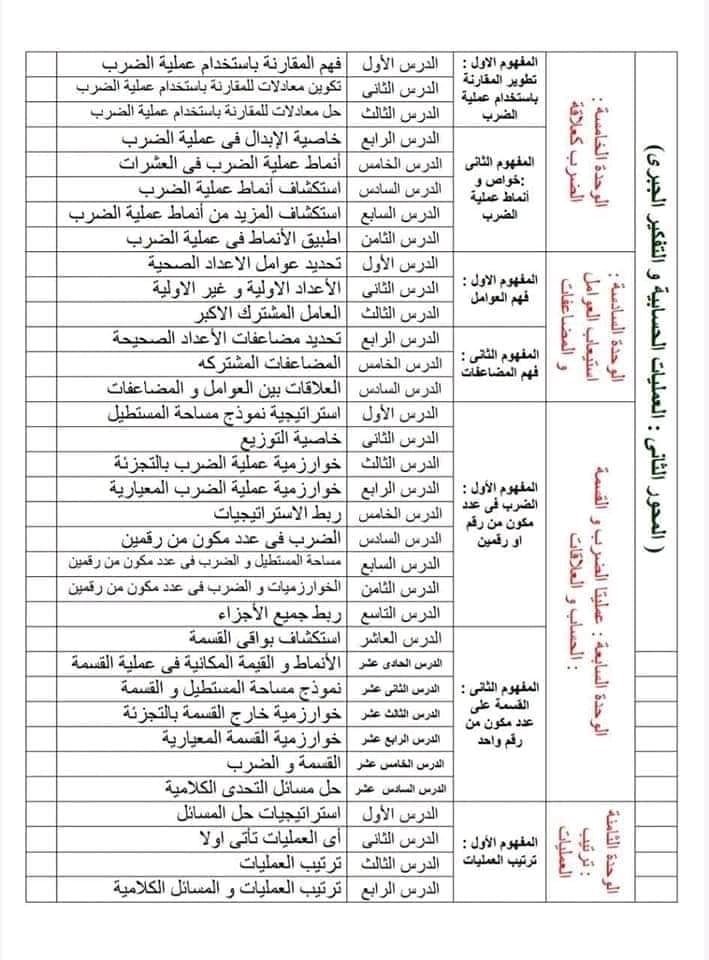 ( المحور الثانى : العمليات الحسابية و التفكير الجبرى)
الوحدة الخامسة :
الضرب كعلاقة
المفهوم الاول :
تطوير المقارنة
باستخدام عملية
الضرب
الدرس الأول فهم المقارنة باستخدام عملية الضرب
الدرس الثانى تكوين معادلات للمقارنة باستخدام عملية الضرب
الدرس الثالث حل معادلات للمقارنة باستخدام عملية الضرب
المفهوم الثانى
:خواص و
أنماط عملية
الضرب
الدرس الرابع خاصية الإبدال فى عملية الضرب
الدرس الخامس أنماط عملية الضرب فى العشرات
الدرس السادس استكشاف أنماط عملية الضرب
الدرس السابع استكشاف المزيد من أنماط عملية الضرب
الدرس الثامن اطبيق الأنماط فى عملية الضرب
الوحدة السادسة :
استيعاب العوامل
و المضاعفات
المفهوم الاول :
فهم العوامل
الدرس الأول تحديد عوامل الاعداد الصحية
الدرس الثانى الأعداد الاولية و غير الاولية
الدرس الثالث العامل المشترك الاكبر
المفهوم الثانى :
فهم المضاعفات
الدرس الرابع تحديد مضاعفات الأعداد الصحيحة
الدرس الخامس المضاعفات المشتركه
الدرس السادس العلاقات بين العوامل و المضاعفات
الوحدة السابعة : عمليتا الضرب و القسمة
: الحساب و العلاقات
المفهوم الأول :
الضرب فى عدد
مكون من رقم
او رقمين
الدرس الأول استراتيجية نموذج مساحة المستطيل
الدرس الثانى خاصية التوزيع
الدرس الثالث خوارزمية عملية الضرب بالتجزئة
الدرس الرابع خوارزمية عملية الضرب المعيارية
الدرس الخامس ربط الاستراتيجيات
الدرس السادس الضرب فى عدد مكون من رقمين
الدرس السابع مساحة المستطيل و الضرب فى عدد مكون من رقمين
الدرس الثامن الخوارزميات و الضرب فى عدد مكون من رقمين
الدرس التاسع ربط جميع الأجزاء
المفهوم الثانى :
القسمة على
عدد مكون من
رقم واحد
الدرس العاشر استكشاف بواقى القسمة
الدرس الحادى عشر الأنماط و القيمة المكانية فى عملية القسمة
الدرس الثانى عشر نموذج مساحة المستطيل و القسمة
الدرس الثالث عشر خوارزمية خارج القسمة بالتجزئة
الدرس الرابع عشر خوارزمية القسمة المعيارية
الدرس الخامس عشر القسمة و الضرب
الدرس السادس عشر حل مسائل التحدى الكلامية
الوحدة الثامنة
: ترتيب
العمليات
المفهوم الأول :
ترتيب العمليات
الدرس الأول استراتيجيات حل المسائل
الدرس الثانى أى العمليات تأتى اولا
الدرس الثالث ترتيب العمليات
الدرس الرابع ترتيب العمليات و المسائل الكلامية